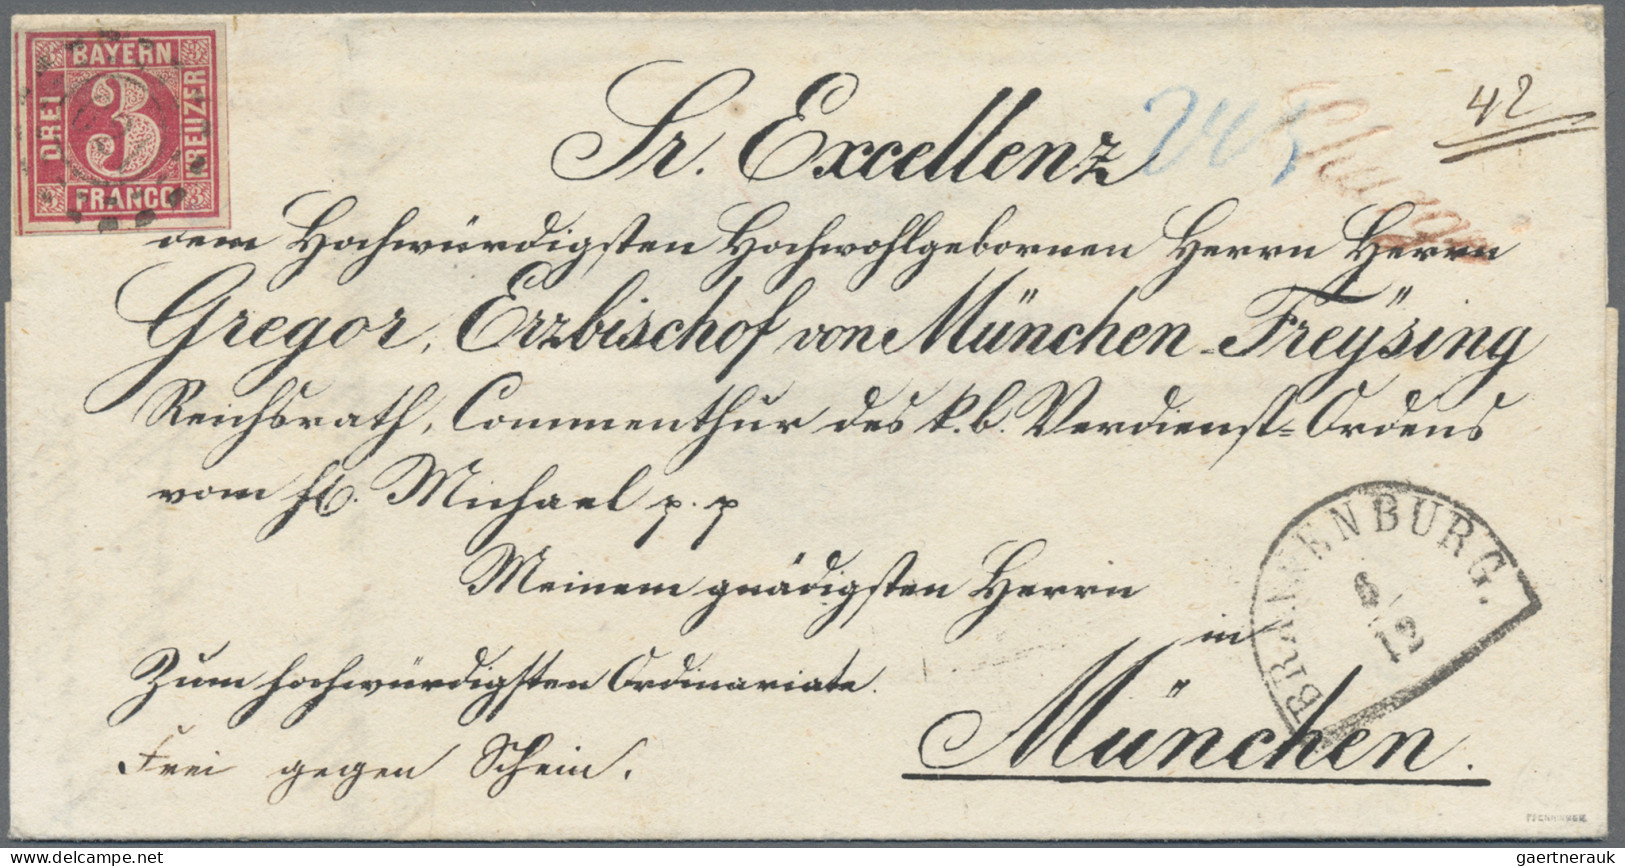 BAYERN
DREI
3
KREUZER
FRANCO
42
Sr. Excellenz
dem Hochwürdigsten Hochwohlgebornen Herrn Herrn
Gregor, Erzbischof von München-Freÿsing
Reichsrath, Commenthur des k. b. Verdienst-Ordens
vom hl. Michael p. p
Meinem gnädigsten Herrn
in
München.
Zum hochwürdigsten Ordinariate.
Frei gegen Schein.
BRANNENBURG.
12
PFENNINGER
delcampe.net
gaertnerauk